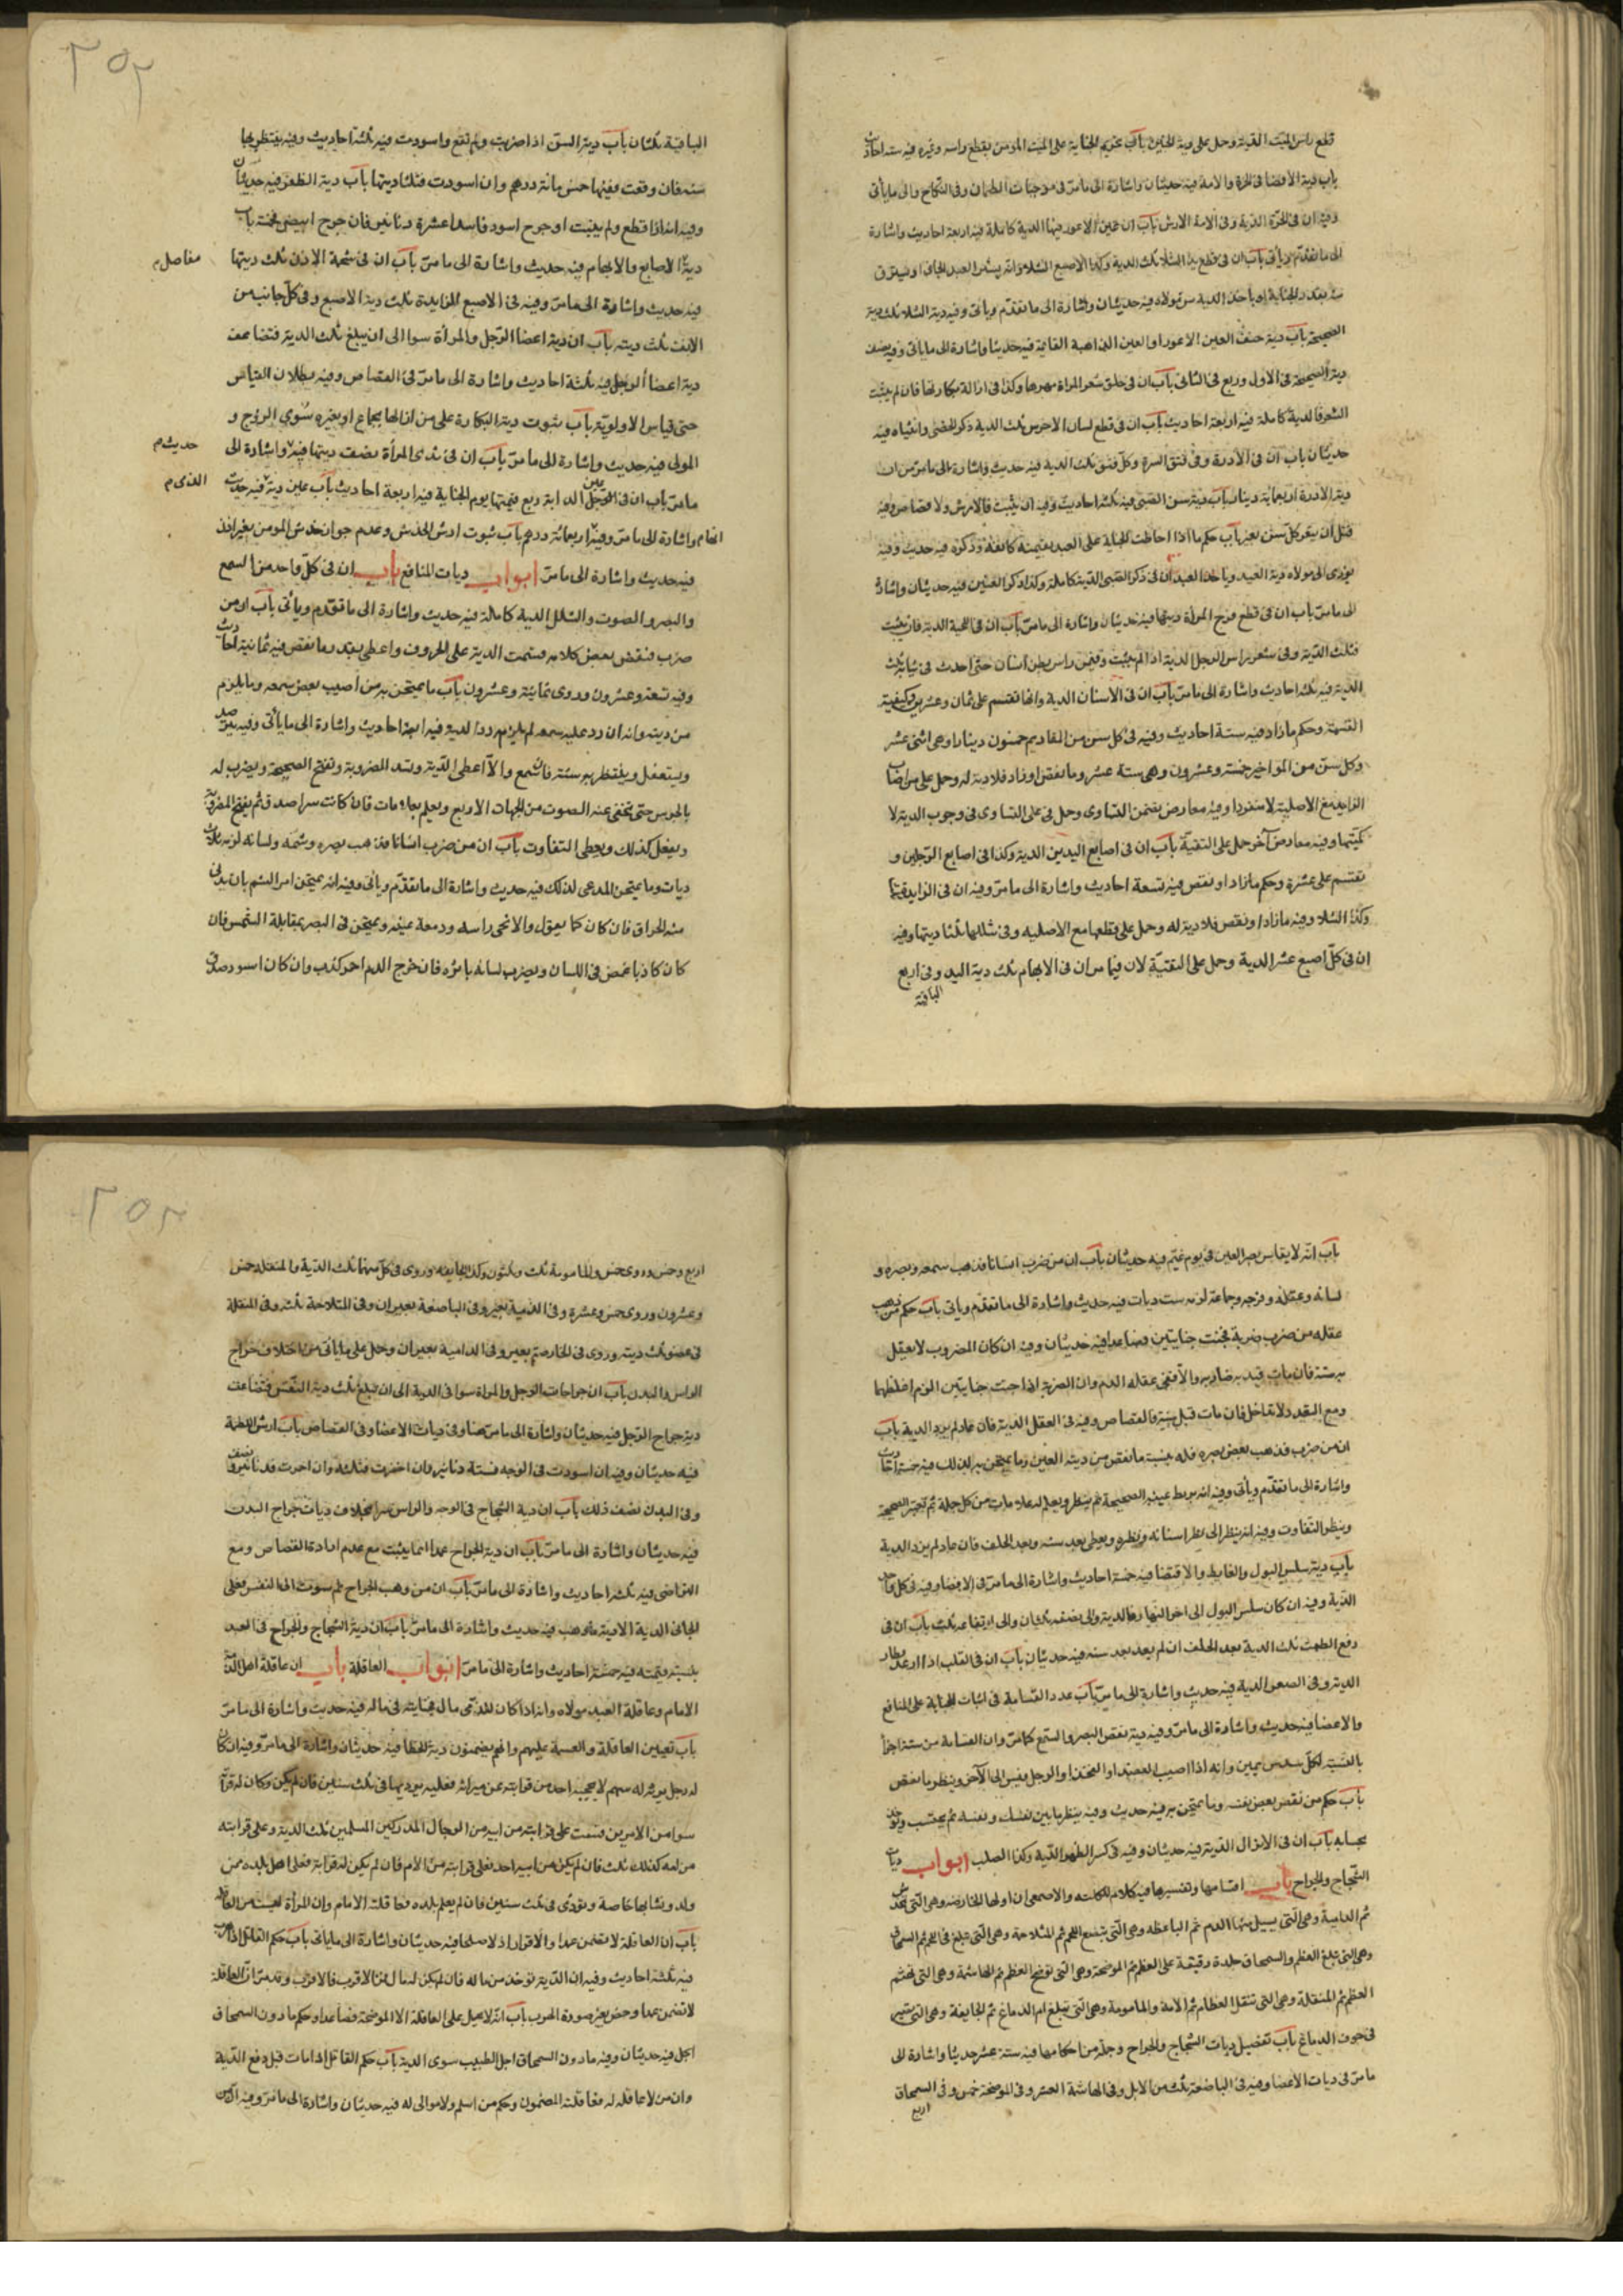 قطع راس الميت الدية وحمل على دية الجنين باب تحريم الجناية على الميت المؤمن بقطع راسه وغيره فيه ستة احاديث
باب دية الافضا في الحرة والامة فيه حديثان واشارة الى مامر في موجبات الضمان وفي النكاح والى ماياتى
وفيه ان في الحرة الدية وفى الامة الارش باب ان عين الاعور فيها الدية كاملة فيه اربعة احاديث واشارة
الى ما تقدم وياتى باب ان في قطع يد الشلا ثلث الدية وكذا الاصبع الشلا
حديثان واشارة الى ما تقدم وياتى وفيه دية الشلا ثلث دية
الصحيحة باب دية خسف العين الاعور او العين الذاهبة القائمة فيه حديثا واشارة الى ماياتى وفيه نصف
دية الصحيحة في الاول وربع في الثانى باب ان في حلق شعر المراة مهرها وكذا في ازالة بكارتها فان لم ينبت
الشعر فالدية كاملة فيه اربعة احاديث باب ان في قطع لسان الاخرس ثلث الدية وذكر الخصى وانثياه فيه
حديثان باب ان في الادرة وفى فتق السرة وكل فتق ثلث الدية فيه حديث واشارة الى مامر من ان
دية الادرة اربعمائة دينار باب دية سن الصبى فيه ثلثة احاديث وفيه ان ينبت فالارش ولا قصاص وفيه
قبل ان يثغر كل سن بعير باب حكم ما اذا احاطت الجناية على العبد بقيمته كانفه وذكره فيه حديث وفيه
يؤدى الى مولاه دية العبد وياخذ العبد ان في ذكر الصبى الدية كاملة وكذا ذكر العنين فيه حديثان واشارة
الى مامر باب ان في قطع فرج المراة ديتها فيه حديثان واشارة الى مامر باب ان في اللحية الدية فان نبتت
فثلث الدية وفى شعر راس الرجل الدية اذا لم ينبت
الدية فيه ثلثة احاديث واشارة الى مامر باب ان في الاسنان الدية وانها تقسم على ثمان وعشرين وكيفية
القسمة وحكم مازاد فيه ستة احاديث وفيه في كل سن من المقاديم خمسون دينارا وهى اثنى عشر
وكل سن من المواخير خمسة وعشرون وهى ستة عشر وما نقص او زاد فلا دية له وحمل على من اصاب
الزايد مع الاصلية لا منفردا وفيه معارض يضمن التساوى وحمل فى على التساوى في وجوب الدية لا
كميتها وفيه معارض آخر حمل على التقية باب ان في اصابع اليدين الدية وكذا في اصابع الرجلين و
تقسم على عشرة وحكم مازاد او نقص فيه تسعة احاديث واشارة الى مامر وفيه ان في الزايد ثلثها
وكذا الشلا وفيه مازاد او نقص فلا دية له وحمل على قطعها مع الاصلية وفى شللها ثلثا ديتها وفيه
ان في كل اصبع عشر الدية وحمل على التقية لان فيما مر ان في الابهام ثلث دية اليد وفى اربع
الباقية
٣٥٢
الباقية ثلثان باب دية السن اذا ضربت ولم تقع واسودت فيه ثلثة احاديث وفيه ينتظر بها
سنة فان وقعت ففيها خمس مائة درهم وان اسودت فثلثا ديتها باب دية الظفر فيه حديثان
وفيه انه اذا قطع ولم ينبت او خرج اسود فاسدا عشرة دنانير فان خرج ابيض فخمسة باب
دية الاصابع والابهام فيه حديث واشارة الى مامر باب ان في شحمة الاذن ثلث ديتها
مفاصل م
فيه حديث واشارة الى مامر وفيه في الاصبع الزايدة ثلث دية الاصبع وفى كل جانب من
الانف ثلث ديته باب ان دية اعضا الرجل والمراة سوا الى ان يبلغ ثلث الدية فتضاعف
دية اعضا الرجل فيه ثلثة احاديث واشارة الى مامر في القصاص وفيه بطلان القياس
حتى قياس الاولوية باب ثبوت دية البكارة على من ازالها بجماع او بغيره سوى الزوج و
المولى فيه حديث واشارة الى مامر باب ان في ثدى المراة نصف ديتها فيه واشارة الى
حديث م
مامر باب ان في عين الدابة ربع قيمتها يوم الجناية فيه اربعة احاديث باب عين دية فيه حديث
الذمى م
واشارة الى مامر وفيه اربعمائة درهم باب ثبوت ارش الخدش وعدم جواز خدش المومن بغير اذن
فيه حديث واشارة الى مامر ابواب ديات المنافع باب ان في كل واحد من السمع
والبصر والصوت والشلل الدية كاملة فيه حديث واشارة الى ما تقدم وياتى باب ان من
ضرب فنقص بعض كلامه قسمت الدية على الحروف واعطى بقدر ما نقص فيه ثمانية احاديث
وفيه تسعة وعشرون وروى ثمانية وعشرون باب ما يمتحن به من اصيب بعض سمعه وما يلزم
من ديته وانه ان رد عليه سمعه لم يلزم رد الدية فيه اربعة احاديث واشارة الى ماياتى وفيه
ويستغفل وينتظر به سنة فان سمع والا اعطى الدية وتسد المضروبة وتفتح الصحيحة ويضرب له
بالجرس حتى يخفى عنه الصوت من الجهات الاربع ويعلم بعلامات فان كانت سوا صدق ثم يفتح المضروبة
ويفعل كذلك ويعطى التفاوت باب ان من ضرب انسانا فذهب بصره وشمه ولسانه لزمه ثلاث
ديات وما يمتحن المدعى لذلك فيه حديث واشارة الى ما تقدم وياتى وفيه انه يمتحن امر الشم بان يدنى
منه الحراق فان كان كما يقول والا نحى راسه ودمعت عينه ويمتحن في البصر بمقابلة الشمس فان
كان كاذبا غمض في اللسان ويضرب لسانه بابرة فان خرج الدم احمر كذب وان كان اسود صدق
باب انه لا يقاس بصر العين في يوم غيم فيه حديثان باب ان من ضرب انسانا فذهب سمعه وبصره و
لسانه وعقله وفرجه وجماعه لزمه ست ديات فيه حديث واشارة الى ما تقدم وياتى باب حكم من ذهب
عقله من ضرب ضربة فجنت جنايتين فصاعدا فيه حديثان وفيه ان كان المضروب لا يعقل
سنة فان مات قيد به ضاربه والا فتى عقله الدم وان الضربة اذا جنت جنايتين الزم اغلظهما
ومع التعدد لا تداخل فان مات قبل سنة فالقصاص وفيه في العقل الدية فان عاد لم يرد الدية باب
ان من ضرب فذهب بعض بصره فله بنسبة ما نقص من دية العين وما يمتحن به لذلك فيه خمسة احاديث
واشارة الى ما تقدم وياتى وفيه انه يربط عينه الصحيحة ثم ينظر ويعلم له علامات من كل جهة ثم الصحيحة
وينظر التفاوت وفيه انه ينظر الى نظر اسنانه ونظره ويعطى بعد سنة وبعد الحلف فان عاد لم يرد الدية
باب دية سلس البول والغايط والافضا فيه خمسة احاديث واشارة الى مامر في الافضا وفيه في كل واحد
الدية وفيه ان كان سلس البول الى اخر النهار فالدية والى نصفه ثلثان والى ارتفاعه ثلث باب ان في
رفع الطمث ثلث الدية بعد الحلف ان لم يعد بعد سنة فيه حديثان باب ان في القلب اذا ارعد فطار
الدية وفى الصعر الدية فيه حديث واشارة الى مامر باب عدد القسامة في اثبات الجناية على المنافع
والاعضا فيه حديث واشارة الى مامر وفيه دية نقص البصر والسمع كما مر وان القسامة من ستة اجزا
بالنسبة لكل سدس يمين وانه اذا اصيب العضد او الفخذ او الرجل يقيس الى الآخر وينظر ما نقص
باب حكم من نقص بعض نفسه وما يمتحن به فيه حديث وفيه ينظر ما بين نفسك ونفسه ثم يحتسب ويؤخذ
بحسابه باب ان في الانزال الدية فيه حديثان وفيه في كسر الظهر الدية وكذا الصلب ابواب ديات
الشجاج والجراح باب اقسامها وتفسيرها فيه كلام الكلينى والاصمعى ان اولها الخارصة وهى التى تخدش
ثم الدامية وهى التى يسيل منها الدم ثم الباضعة وهى التى تبضع اللحم ثم المتلاحمة وهى التى تبلغ في اللحم ثم السمحاق
وهى التى تبلغ العظم والسمحاق جلدة رقيقة على العظم ثم الموضحة وهى التى توضح العظم ثم الهاشمة وهى التى تهشم
العظم ثم المنقلة وهى التى تنقل العظام ثم الامة والمامومة وهى التى تبلغ ام الدماغ ثم الجايفة وهى التى تصير
في جوف الدماغ باب تفصيل ديات الشجاج والجراح وجملة من احكامها فيه ستة عشر حديثا واشارة الى
مامر في ديات الاعضا وفيه في الباضعة ثلث من الابل وفى الهاشمة العشر وفى الموضحة خمس وفى السمحاق
اربع
اربع وخمس وروى خمس والمامومة ثلث وثلثون وكذا الجايفة وروى في كل منهما ثلث الدية والمنقلة خمس
وعشرون وروى خمس وعشرة وفى الدامية بعير وفى الباضعة بعيران وفى المتلاحمة ثلثة وفى المنقلة
في عضو ثلث ديته وروى في الخارصة بعير وفى الدامية بعيران وحمل على ماياتى من اختلاف جراح
الراس والبدن باب ان جراحات الرجل والمراة سوا في الدية الى ان تبلغ ثلث دية النفس فتضاعف
دية جراح الرجل فيه حديثان واشارة الى مامر هنا وفى ديات الاعضا وفى القصاص باب ارش اللطمة
فيه حديثان وفيه ان اسودت في الوجه فستة دنانير فان اخضرت فثلثة وان احمرت فدينار ونصف
وفى البدن نصف ذلك باب ان دية الشجاج في الوجه والراس سوا بخلاف ديات جراح البدن
فيه حديثان واشارة الى مامر باب ان دية الجراح عمدا انما يثبت مع عدم ارادة القصاص ومع
التراضى فيه ثلثة احاديث واشارة الى مامر باب ان من وهب الجراح ثم سرت الى النفس فعلى
الجانى الدية الا دية ما وهب فيه حديث واشارة الى مامر باب ان دية الشجاج والجراح في العبد
بنسبة قيمته فيه خمسة احاديث واشارة الى مامر ابواب العاقلة باب ان عاقلة اهل الذمة
الامام وعاقلة العبد مولاه وانه اذا كان للذمى مال فجنايته في ماله فيه حديث واشارة الى مامر
باب تعيين العاقلة والقسمة عليهم وانهم يضمنون دية الخطا فيه حديثان واشارة الى مامر وفيه ان كان
له رجل يرثه له سهم لا يحجبه احد من قرابته عن ميراثه فعليه يؤديها في ثلث سنين فان لم يكن وكان له قرابة
سوا من الابوين قسمت على قرابته من ابيه من الرجال المدركين المسلمين ثلث الدية وعلى قرابته
من امه كذلك ثلث فان لم يكن من ابيه احد فعلى قرابته من الام فان لم يكن له قرابة فعلى اهل بلده ممن
ولد ونشا بها خاصة وتؤدى في ثلث سنين فان لم يعلم بلده فعاقلته الامام وان المراة ليست من العاقلة
باب ان العاقلة لا تضمن عمدا ولا اقرارا ولا صلحا فيه حديثان واشارة الى ماياتى باب حكم القاتل اذا هرب
فيه ثلثة احاديث وفيه ان الدية تؤخذ من ماله فان لم يكن له مال فمن الاقرب فالاقرب وقد مر ان العاقلة
لا تضمن عمدا وخص بغير صورة الهرب باب انه لا يحمل على العاقلة الا الموضحة فصاعدا وحكم ما دون السمحاق
اجل فيه حديثان وفيه ما دون السمحاق اجل الطبيب سوى الدية باب حكم القاتل اذا مات قبل دفع الدية
وان من لا عاقلة له فعاقلته المضمون وحكم من اسلم ولا موالى له فيه حديثان واشارة الى مامر وفيه